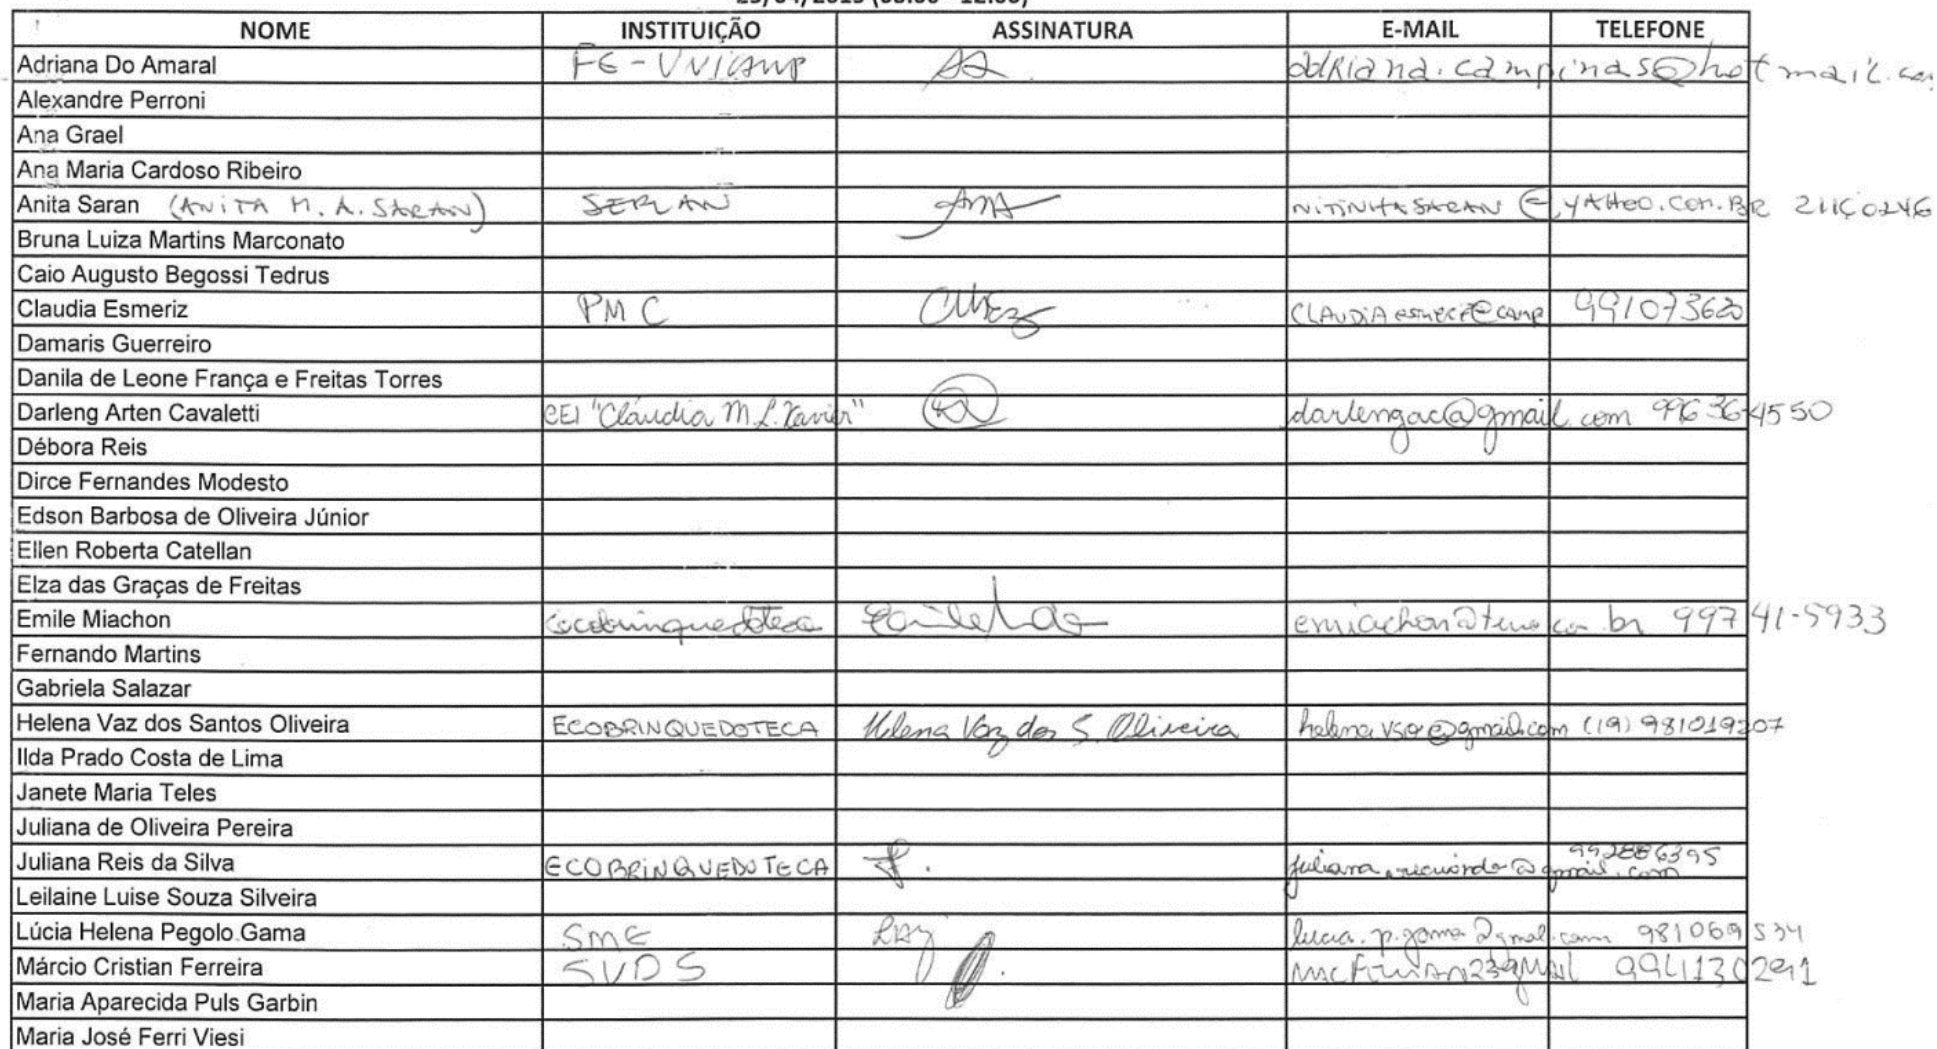 NOME INSTITUIÇÃO ASSINATURA E-MAIL TELEFONE
Adriana Do Amaral FE - UNICAMP adriana.campinas@hotmail.
Alexandre Perroni
Ana Grael
Ana Maria Cardoso Ribeiro
Anita Saran (ANITA M. A. SARAN) SERLAN NITINHASARAN @YAHOO.COM.BR
Bruna Luiza Martins Marconato
Caio Augusto Begossi Tedrus
Claudia Esmeriz PMC 991073620
Damaris Guerreiro
Danila de Leone França e Freitas Torres
Darleng Arten Cavaletti CEI "Cláudia M. L. Xavier" darlengac@gmail.com 99636-4550
Débora Reis
Dirce Fernandes Modesto
Edson Barbosa de Oliveira Júnior
Ellen Roberta Catellan
Elza das Graças de Freitas
Emile Miachon 99741-5933
Fernando Martins
Gabriela Salazar
Helena Vaz dos Santos Oliveira ECOBRINQUEDOTECA Helena Vaz dos S. Oliveira (19) 981019207
Ilda Prado Costa de Lima
Janete Maria Teles
Juliana de Oliveira Pereira
Juliana Reis da Silva ECOBRINQUEDOTECA 992886395
Leilaine Luise Souza Silveira
Lúcia Helena Pegolo Gama SME 981069534
Márcio Cristian Ferreira SVDS
Maria Aparecida Puls Garbin
Maria José Ferri Viesi